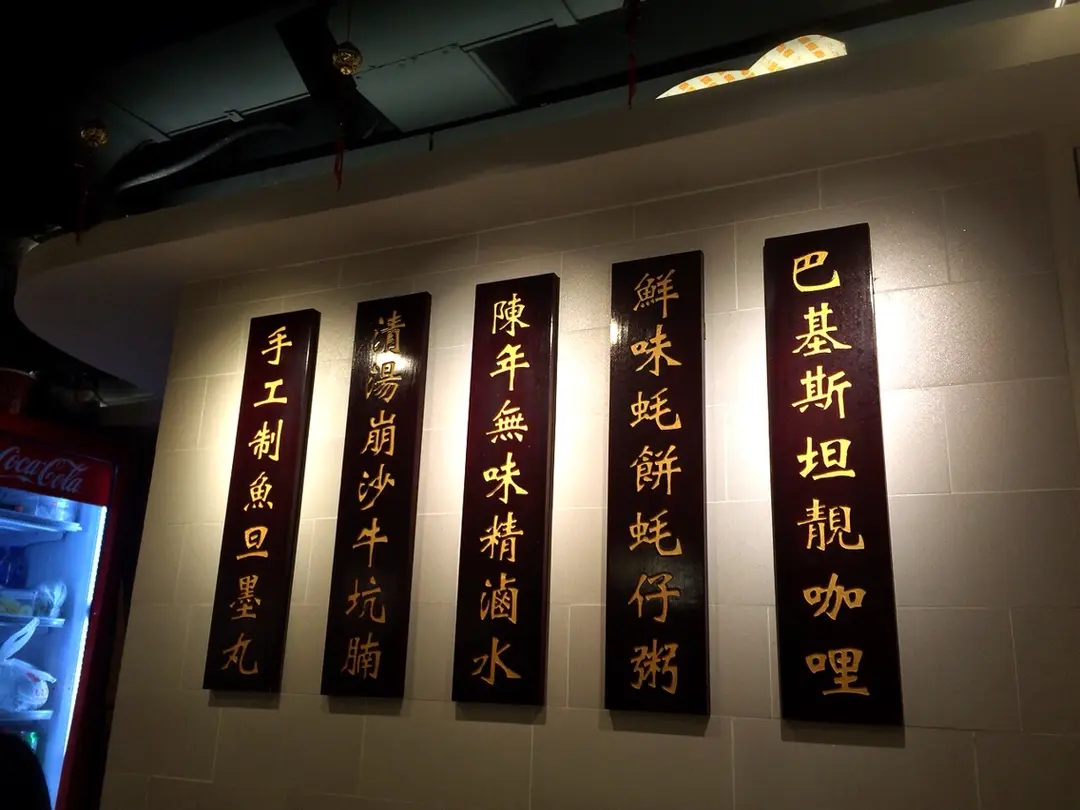 巴基斯坦靚咖哩
鮮味蚝餅蚝仔粥
陳年無味精滷水
清湯崩沙牛坑腩
手工制魚旦墨丸
Coca-Cola